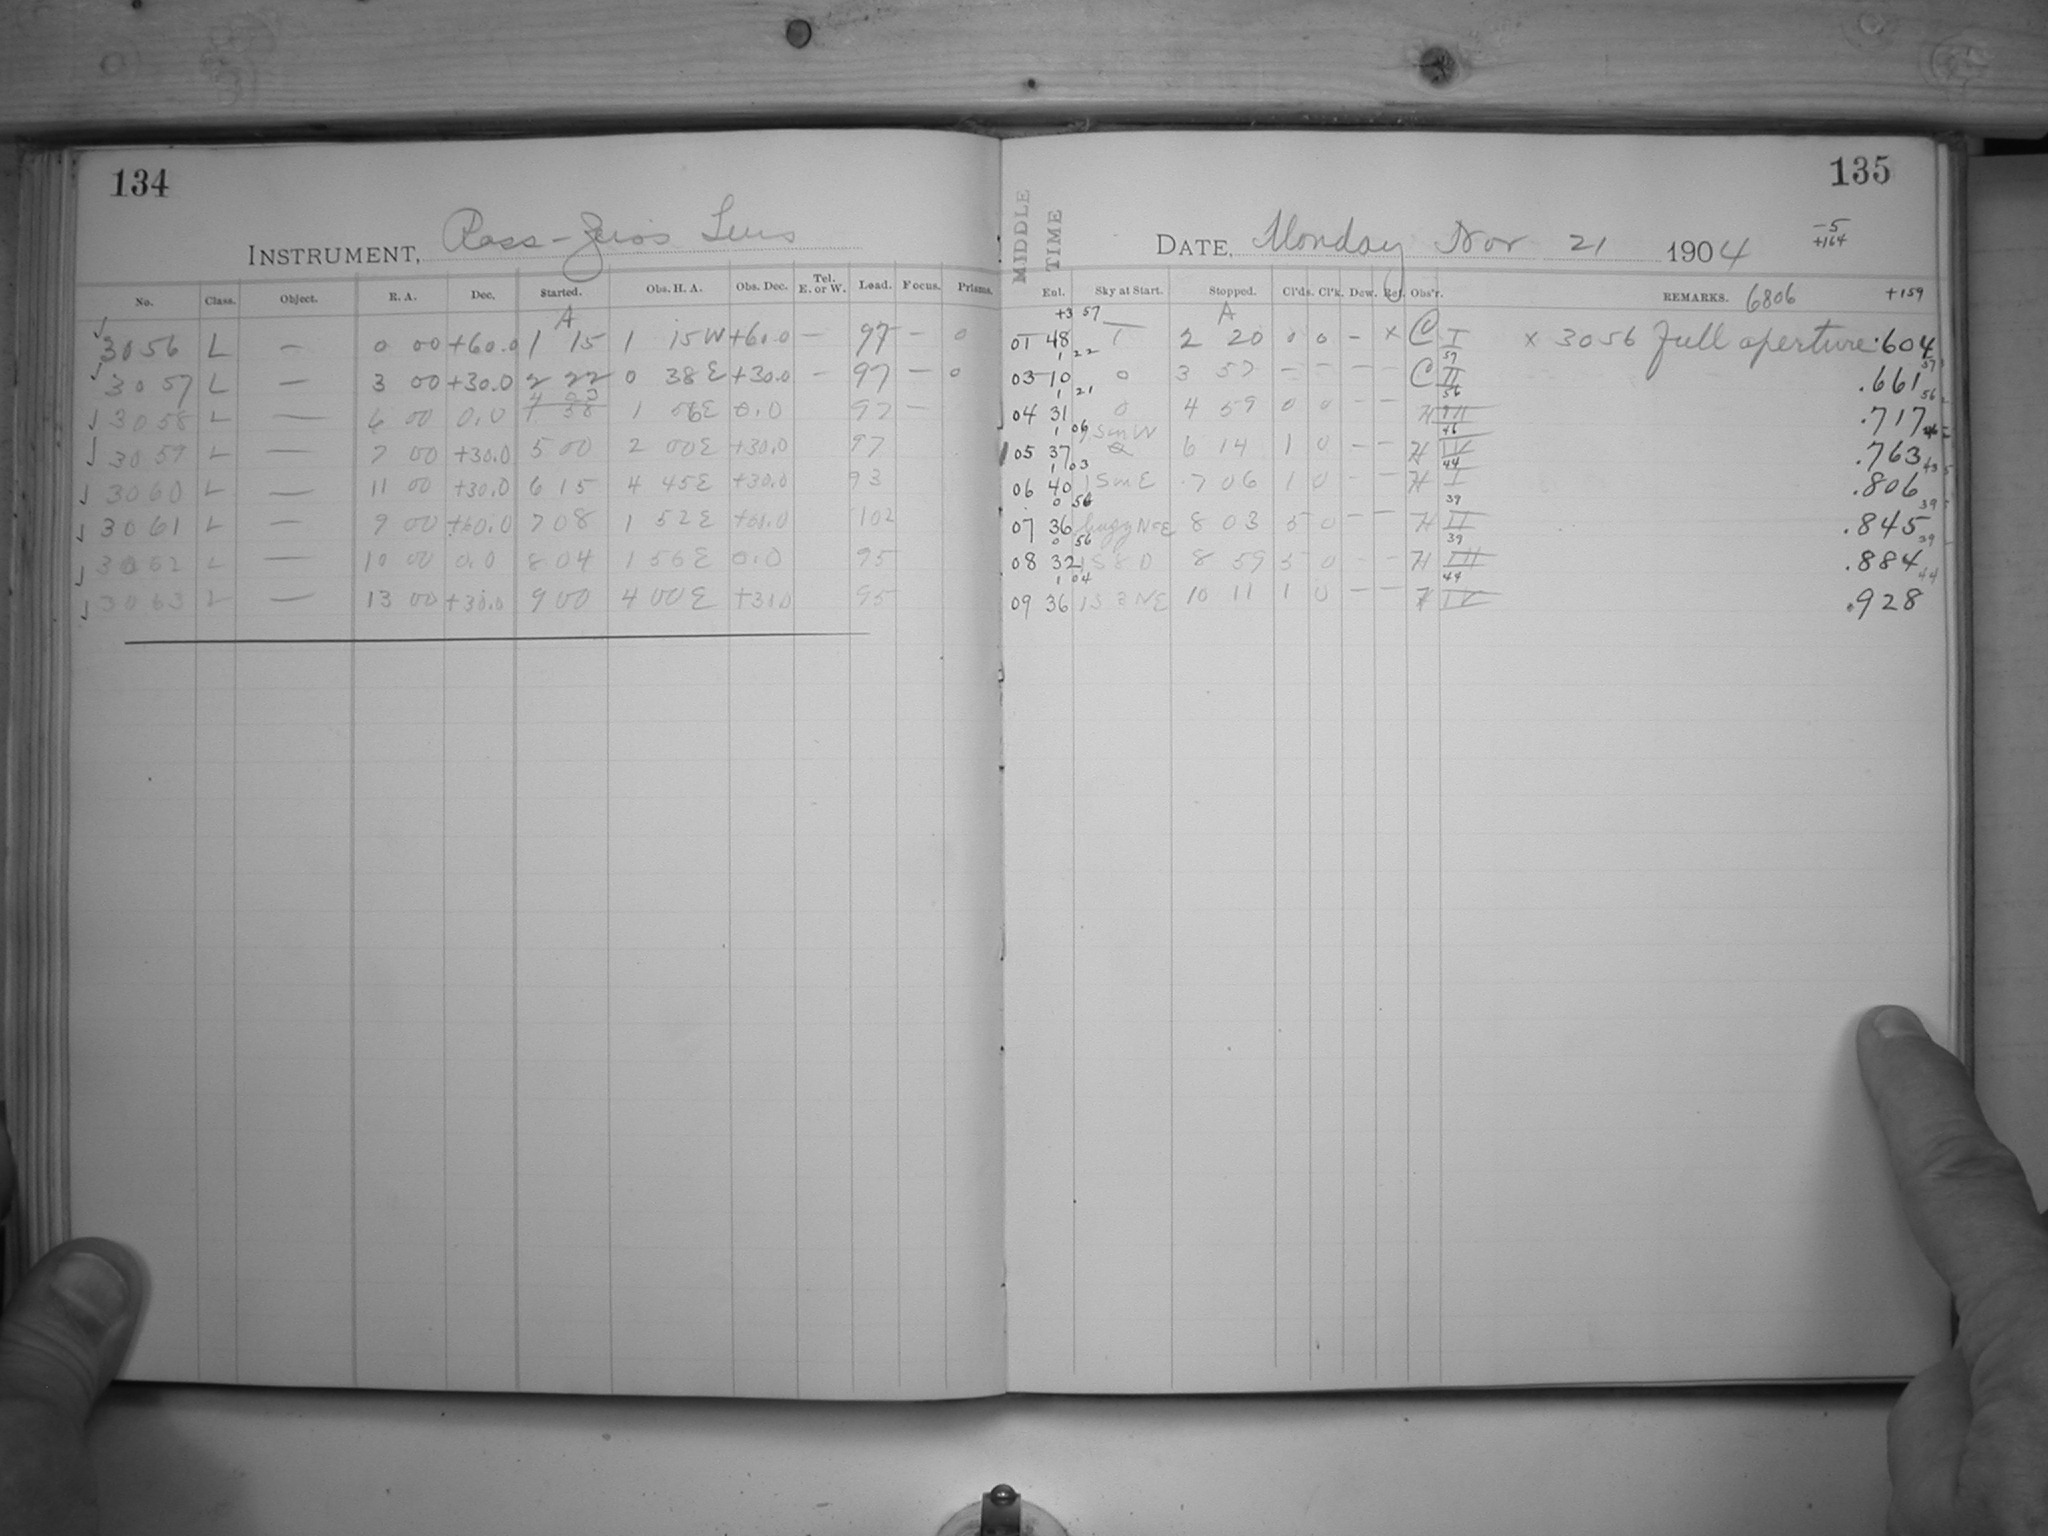 134
INSTRUMENT, Ross-Zeiss Lens
No. Class. Object. R. A. Dec. Started. Obs. H. A. Obs. Dec. Tel. E. or W. Load. Focus. Prisms.
A
3056 L — 0 00 +60.0 1 15 1 15W +60.0 — 97 — 0
3057 L — 3 00 +30.0 2 22 0 38E +30.0 — 97 — 0
3058 L — 6 00 0.0 1 06E 0.0 97 —
3059 L — 7 00 +30.0 5 00 2 00E +30.0 97
3060 L — 11 00 +30.0 6 15 4 45E +30.0 93
3061 L — 9 00 +60.0 7 08 1 52E +60.0 102
3062 L — 10 00 0.0 8 04 1 56E 0.0 95
3063 L — 13 00 +30.0 9 00 4 00E +31.0 95
135
MIDDLE TIME
DATE, Monday Nov 21 1904
-5
+164
Ent. Sky at Start. Stopped. Cl'ds. Cl'k. Dew. Rej. Obs'r. REMARKS. 6806 +159
+3 57 A
01 48 1 2 20 0 0 — x C I x 3056 Full aperture .604
1 22 57 57
03 10 0 3 57 — — — — C II .661
1 21 56 56
04 31 0 4 59 0 0 — — H III .717
1 06 SmW 46
05 37 6 14 1 0 — — H IV .763
1 03 44 43
06 40 1 SmE 7 06 1 0 — — H I .806
0 56 39 39
07 36 8 03 5 0 — — H II .845
0 56 39 39
08 32 8 59 5 0 — — H III .884
1 04 44 44
09 36 10 11 1 0 — — IV .928